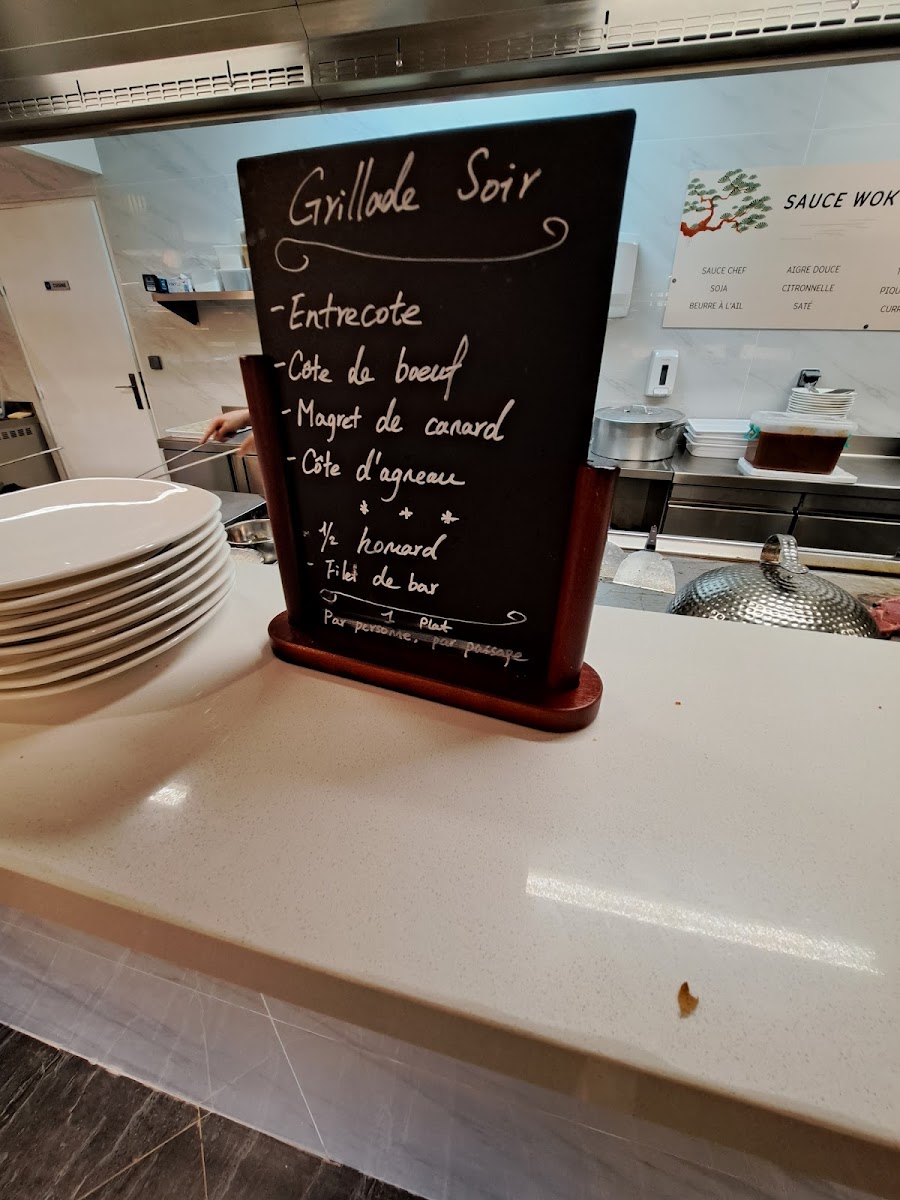 Grillade Soir
- Entrecote
- Côte de boeuf
- Magret de canard
- Côte d'agneau
* * *
- 1/2 homard
- Filet de bar
1 Plat
Par personne, par passage
SAUCE WOK
SAUCE CHEF
SOJA
BEURRE À L'AIL
AIGRE DOUCE
CITRONNELLE
SATÉ